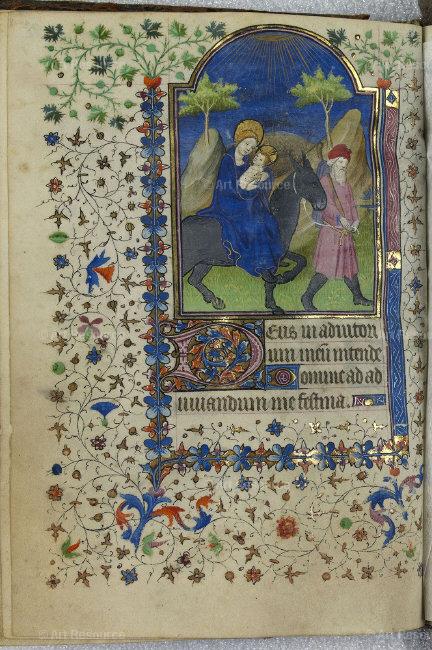 Deus in adiutori
um meū intende
Domine ad ad
iuuandum me festina.
© Art Resource
© Art Resource